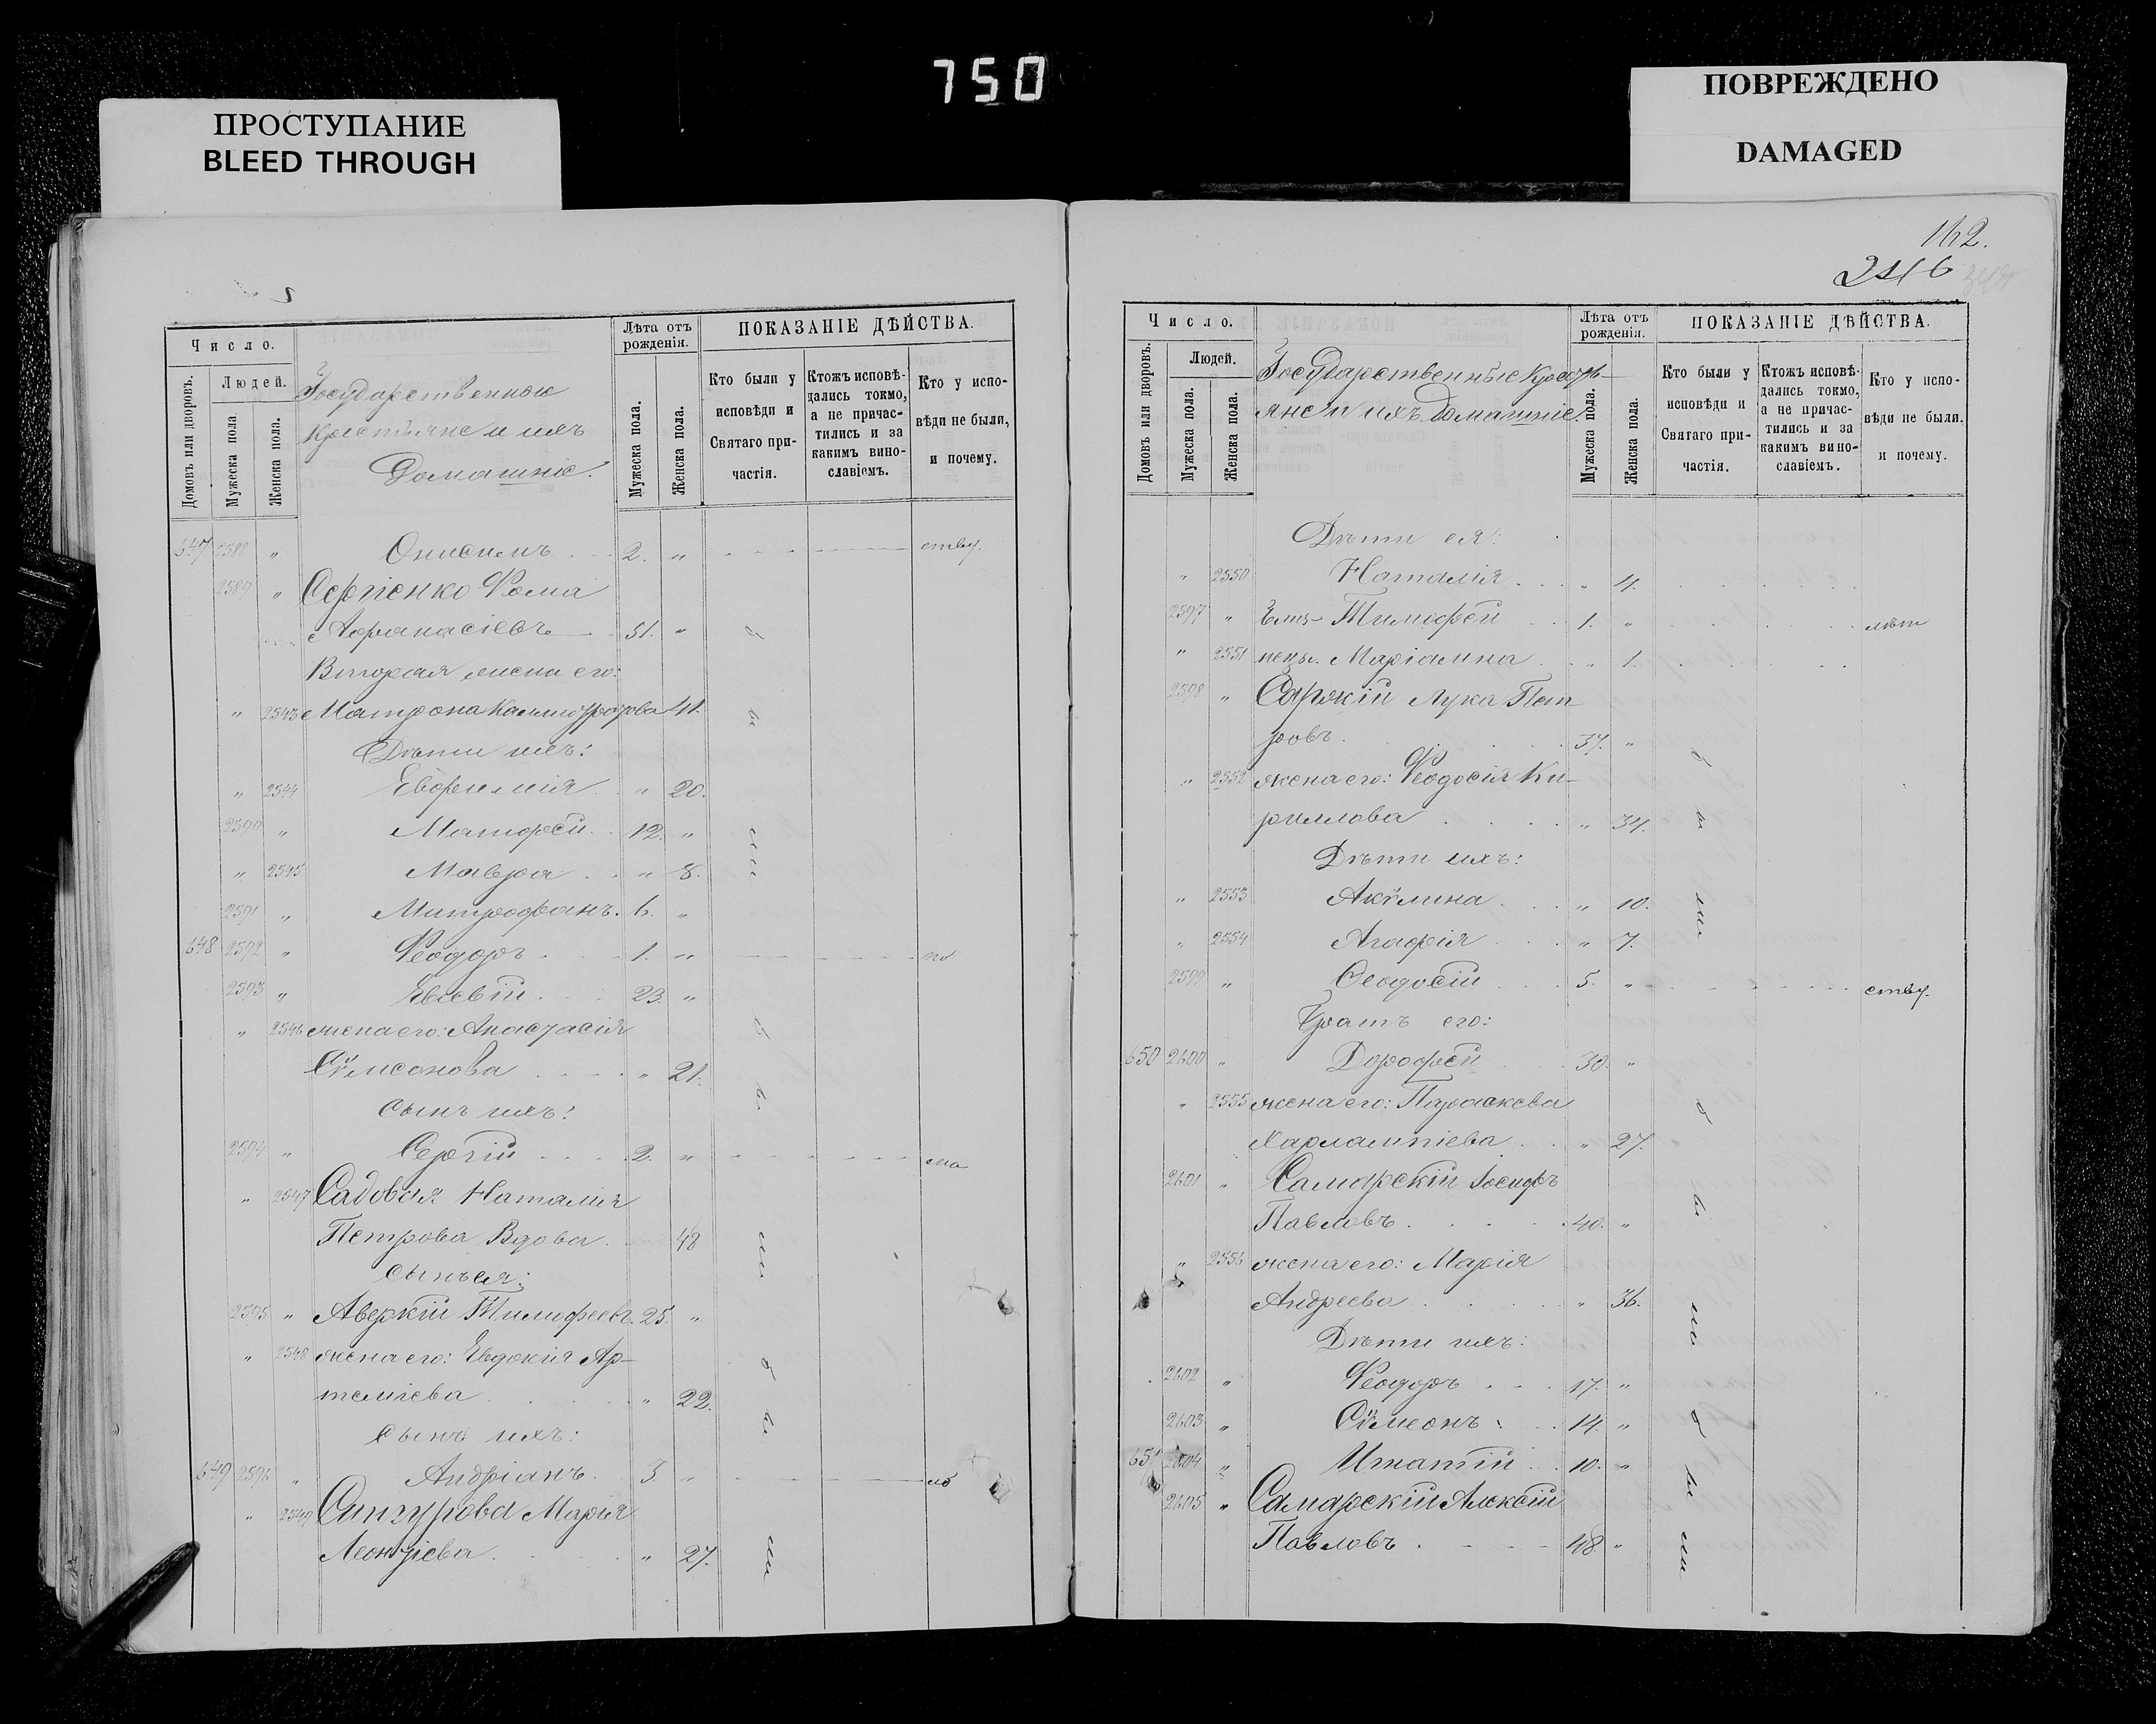 750
ПРОСТУПАНИЕ
BLEED THROUGH
ПОВРЕЖДЕНО
DAMAGED
Число.
Домовъ или дворовъ.
Людей.
Мужеска пола
Женска пола.
Государственные
крестьяне и ихъ
домашніе.
Лѣта отъ
рожденія.
Мужеска пола.
Женска пола.
ПОКАЗАНІЕ ДѢЙСТВА.
Кто были у
исповѣди и
Святаго при-
частія.
Ктожъ исповѣ-
дались токмо,
а не причас-
тились и за
какимъ вино-
славіемъ.
Кто у испо-
вѣди не были,
и почему.
647 2588 " Онисимъ 2. " ству.
2589 " Сергіенко Фома
Афанасіевъ 51. "
Вторая жена его:
" 2543 Матрона Никифорова 41.
Дѣти ихъ:
" 2544 Евфимія " 20.
2590 " Матфей 12. "
" 2545 Мавра " 8.
2591 " Митрофанъ. 6. "
648 2592 " Феодоръ 1. " по
2593 " Евсевій 23. "
" 2546 жена его: Анастасія
Сѵмеонова " 21.
сынъ ихъ:
2594 " Сергій 2. " ма
" 2547 Садовая Наталія
Петрова Вдова 48
сынъ ея:
2595 " Аверкій Тимофеевъ. 25. "
" 2548 жена его: Евдокія Ар-
теміева " 22.
Сынъ ихъ:
649 2596 " Андріанъ 3. " ло
" 2549 Марія
Леонтіева " 27.
были
были
были
162.
246
Число.
Домовъ или дворовъ.
Людей.
Мужеска пола.
Женска пола.
Государственные кресть-
яне и ихъ домашніе.
Лѣта отъ
рожденія.
Мужеска пола.
Женска пола.
ПОКАЗАНІЕ ДѢЙСТВА.
Кто были у
исповѣди и
Святаго при-
частія.
Ктожъ исповѣ-
дались токмо,
а не причас-
тились и за
какимъ вино-
славіемъ.
Кто у испо-
вѣди не были.
и почему.
Дѣти ея:
" 2550 Наталія " 4.
2597 " Тимофей 1. " лѣт
" 2551 Маріамна " 1.
2598 " Лука Пет
ровъ 37. "
" 2552 жена его: Феодосія Ки-
риллова " 34.
Дѣти ихъ:
" 2553 Акѵлина " 10.
" 2554 Агафія " 7.
2599 " Феодосій 5. " ству.
Братъ его:
650 2600 " Дорофей 30. "
" 2555 жена его: Параскева
Харлампіева " 27.
2601 " Самарскій Іосифъ
Павловъ 40. "
" 2556 жена его: Марія
Андреева " 36.
Дѣти ихъ:
2602 " Феодоръ 17. "
2603 " Сѵмеонъ 14. "
651 2604 " Игнатій 10. "
2605 " Самарскій Алексій
Павловъ 48 "
были
были
были